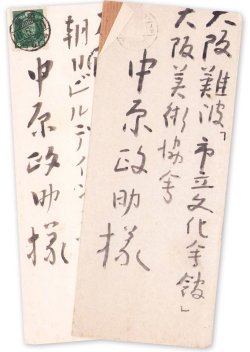 大阪難波「市立文化会館」
大阪美術協会
中原政助様
朝日ビルデイング
中原政助様